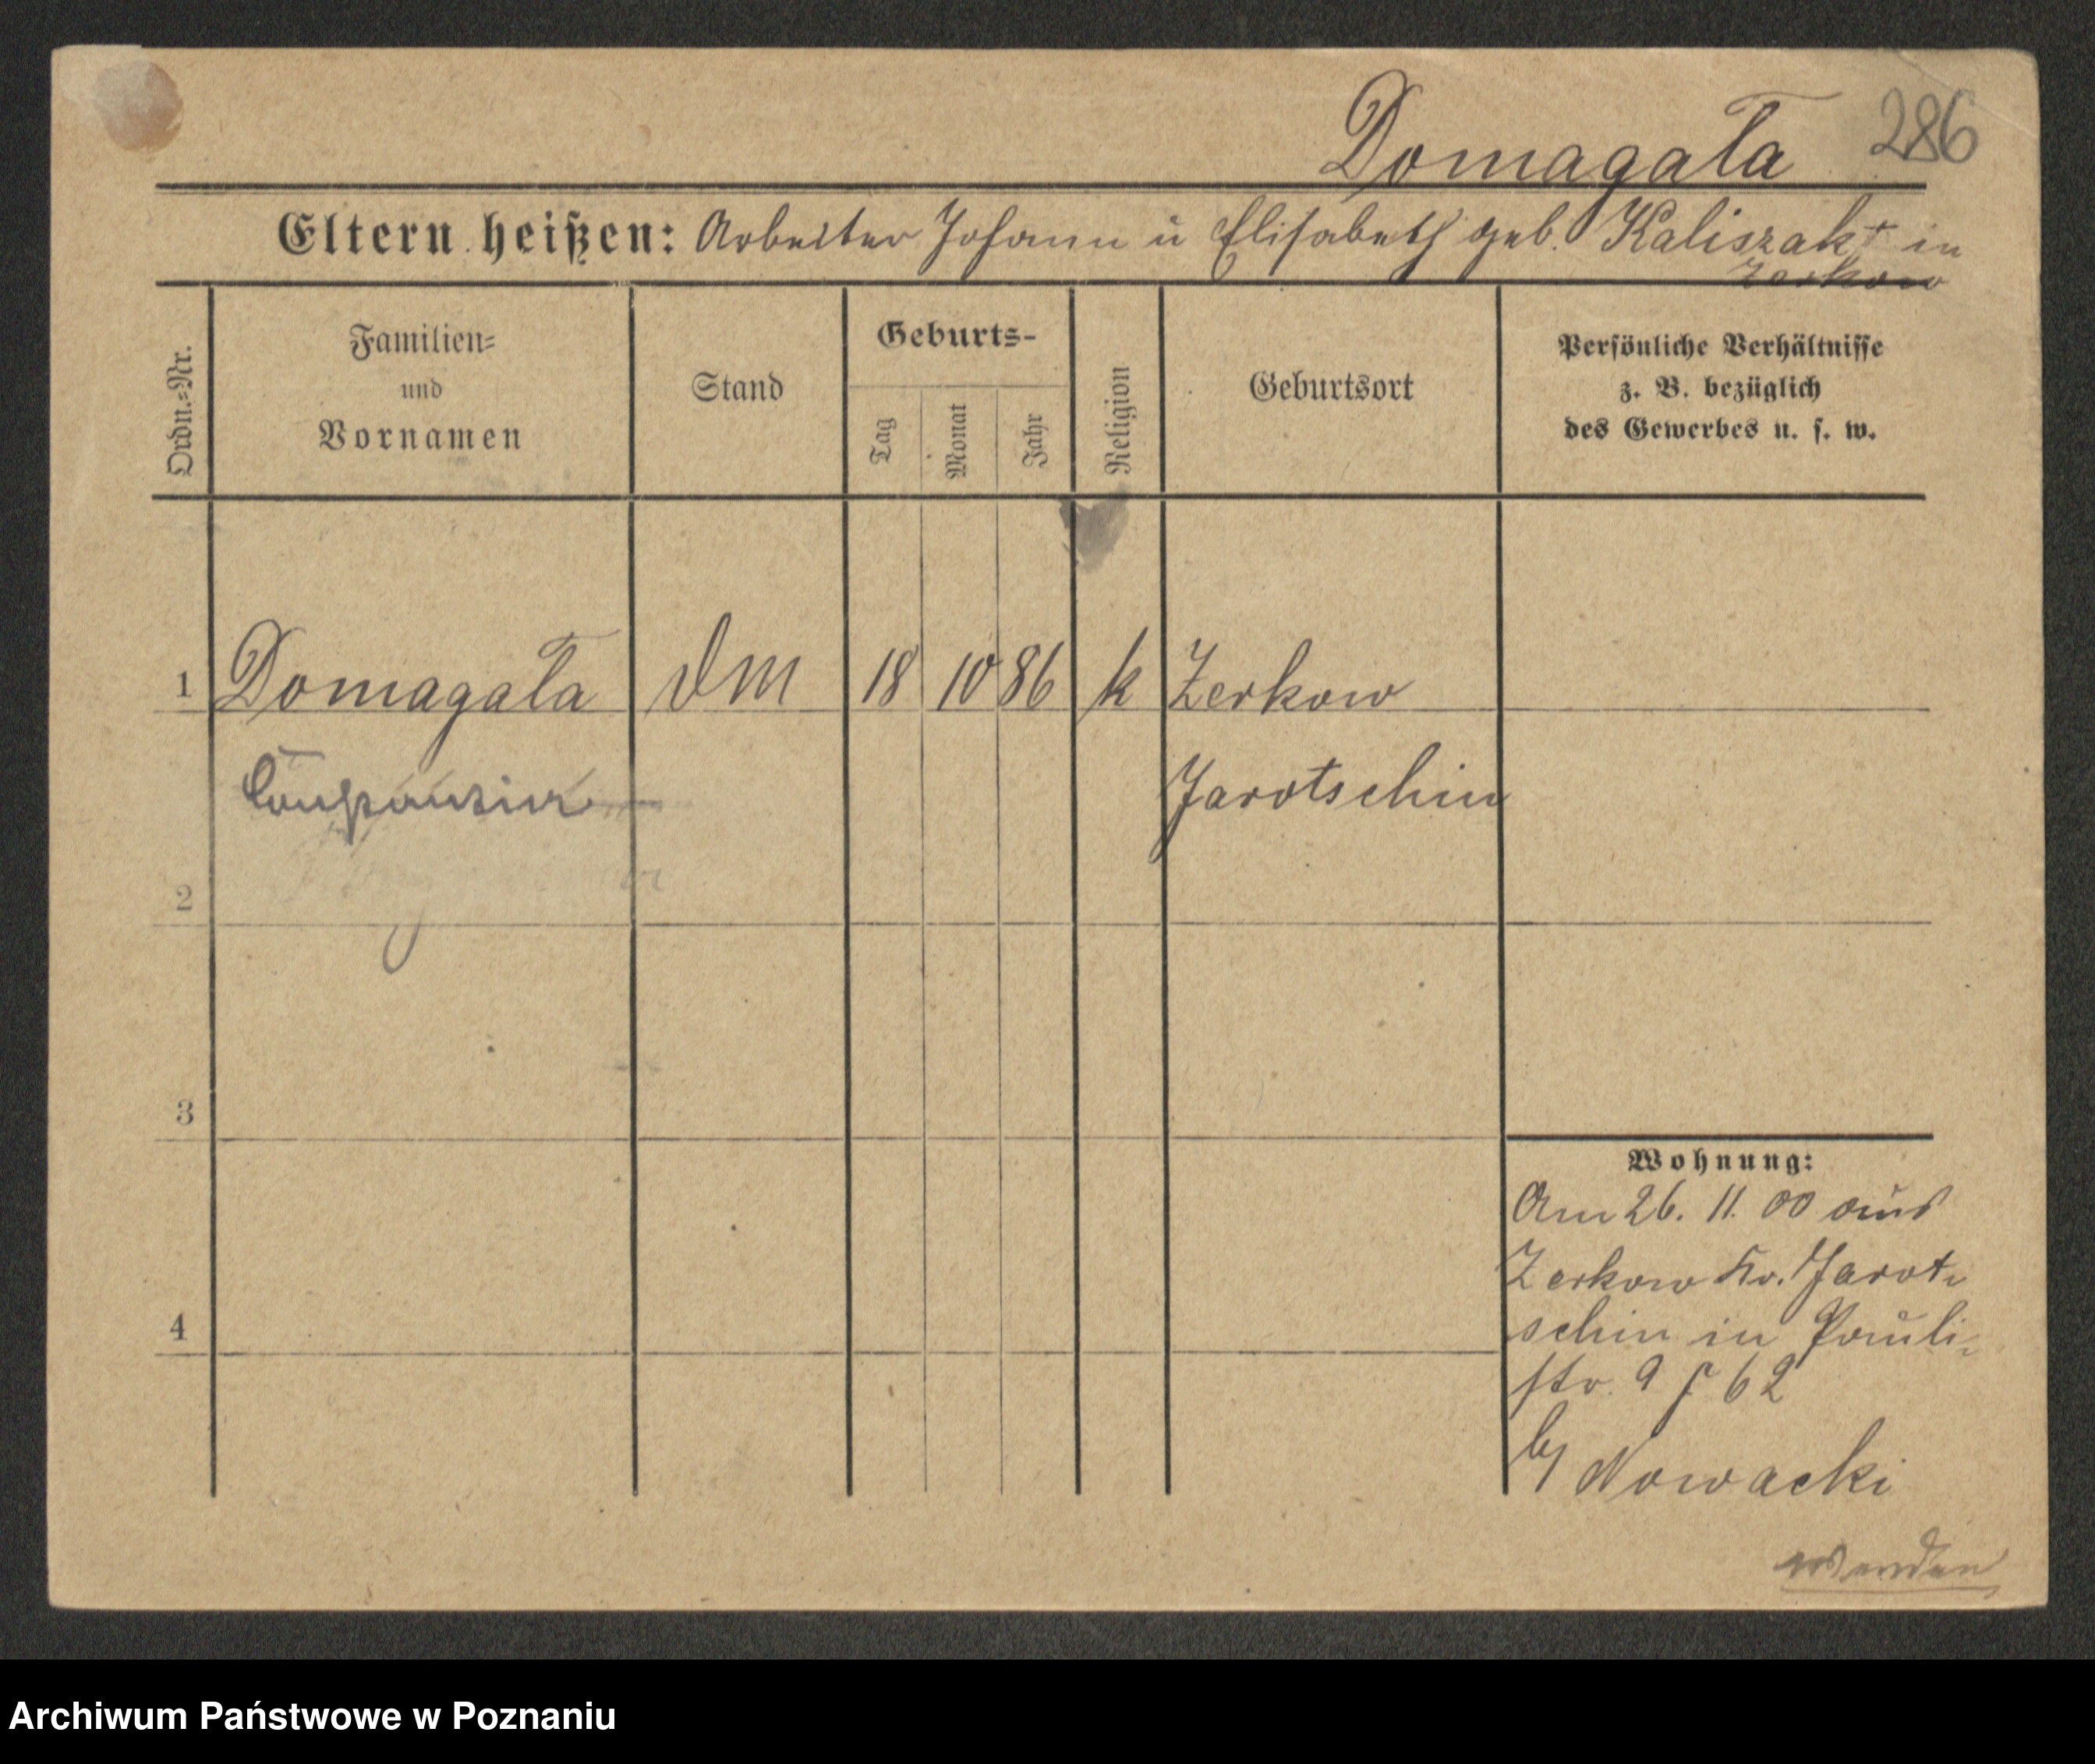 Domagała 286
Eltern heißen: Arbeiter Johann u Elisabeth geb. Kaliszak + in
Zerkow
Ordn.=Nr.
Familien=
und
Vornamen
Stand
Geburts-
Tag
Monat
Jahr
Religion
Geburtsort
Persönliche Verhältnisse
z. B. bezüglich
des Gewerbes u. s. w.
1 Domagała DM 18 10 86 k Zerkow
Jarotschin
2
3
4
Wohnung:
Am 26. 11. 00 aus
Zerkow Kr. Jarot-
schin in Pauli-
str. 9 f 62
b/ Nowacki
Wenden
Archiwum Państwowe w Poznaniu